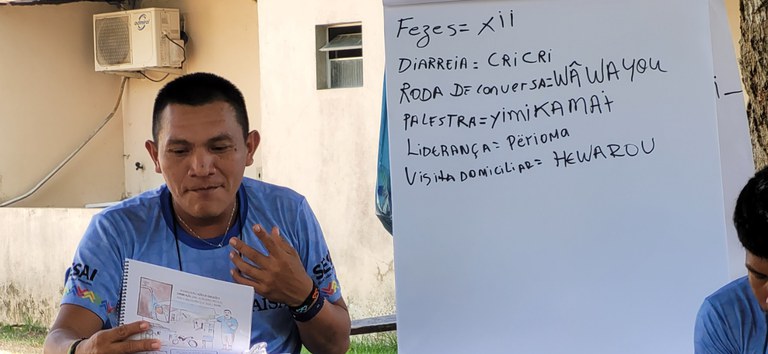 Fezes = xii
DIARREIA = CRICRI
RODA DE conversa = WÂWAYOU
PALESTRA = YIMIKAMAI
LIDERANÇA = Përioma
VisitA domiciliAR = HEWAROU
SESAI